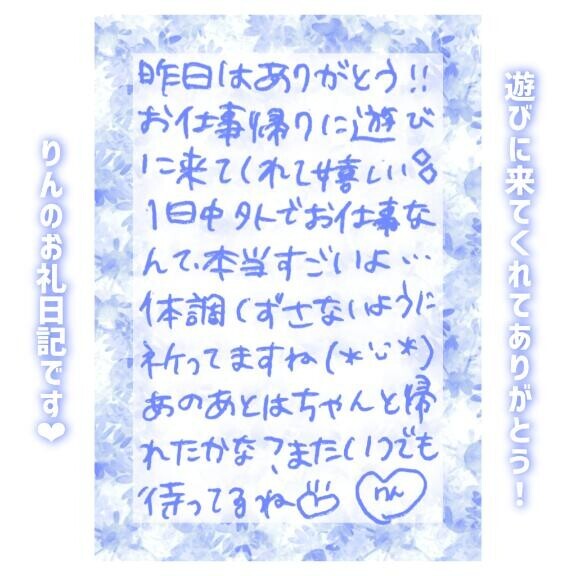 遊びに来てくれてありがとう!
昨日はありがとう!!
お仕事帰りに遊び
に来てくれて嬉しい
1日中外でお仕事な
んて、本当すごいよ…
体調くずさないように
祈ってますね(*'ᵕ'*)
あのあとはちゃんと帰
れたかな?またいつでも
待ってるね
りん
りんのお礼日記です❤